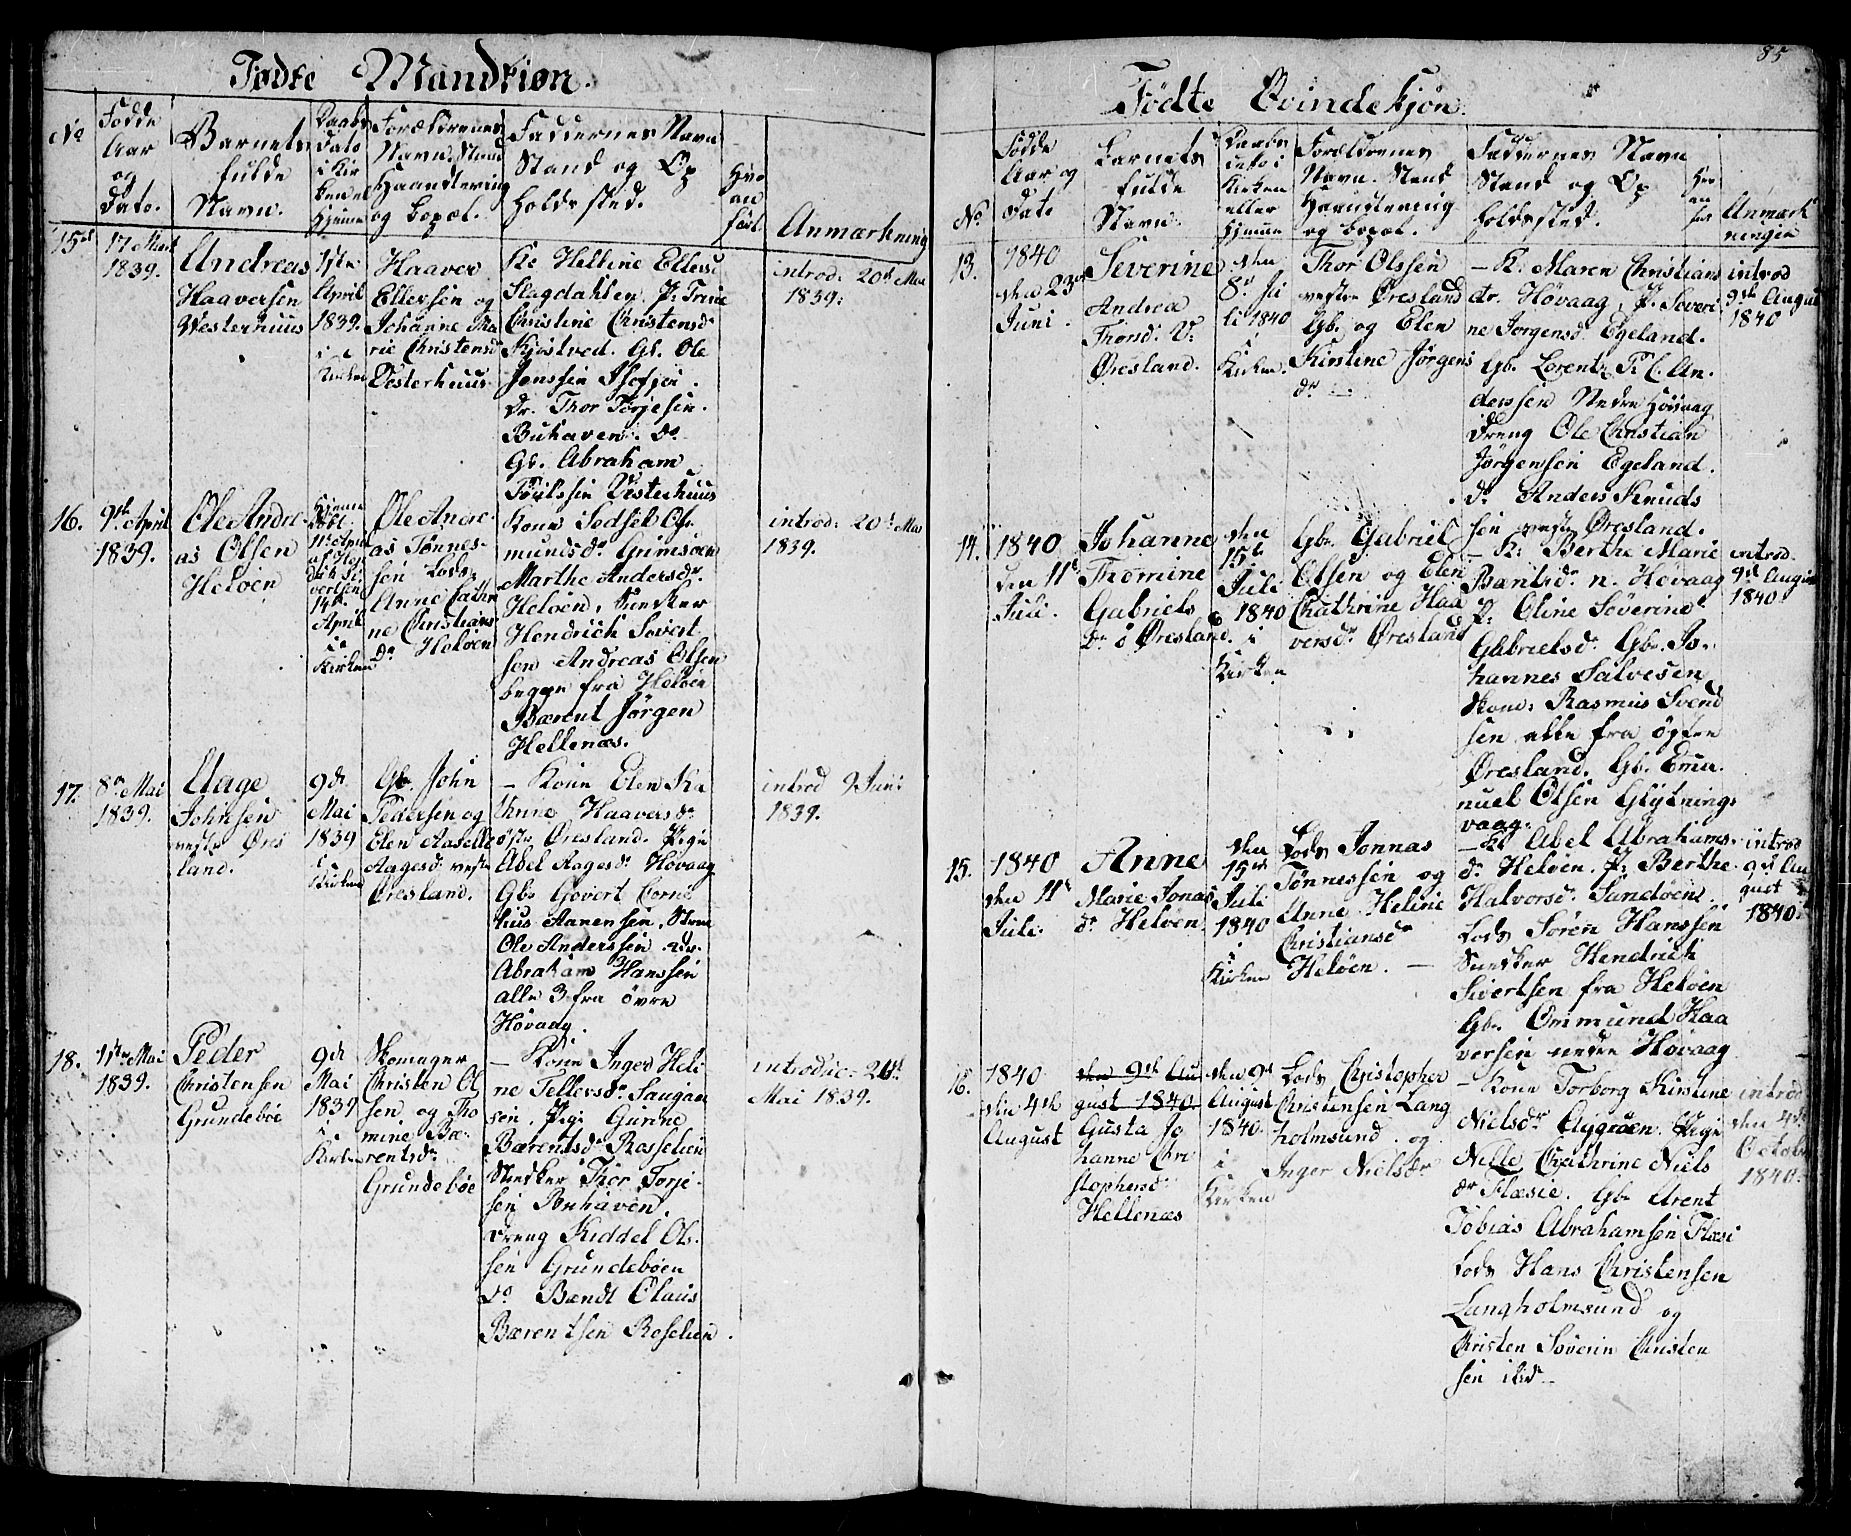 Fødte Mandkiøn.
No
Fødde Aar og Dato.
Barnets fulde Navn.
Daabs Dato i Kirken el Hjemme
Forældrenes Navn. Stand Haandtering og bopæl.
Faddernes Navn Stand og Op holdssted.
Hvor anført
Anmærkning
15de
17 Mart
1839.
Andreas
Haaversen
Westerhuus
1ste
April
1839.
i
Kirken
Haaver
Ellefsen og
Johanne Ma
rie Christensd
Vesterhuus
Ke Helline Ellefsd
Slagdahlen. P. Trine
Christine Christensd
Kjostved. Gb. Ole
Jenssen Isefjer.
Dr. Thor Torjesen.
Buhaven. do
Gb. Abraham
Vesterhuus
introd: 20de Mai
1839:
16.
9de April
1839.
Ole Andre
as Olsen
Heløen
Hjemme
døbt
11te April
af Hen
drik Si
vertsen
14de
April
i
Kirken
Ole Andre
as Tønnes
sen Lods.
Anne Cathri
ne Christians
dr Heløen
Kone Sodsel Os
mundsdr Grimsøen
Marthe Andersdr.
Heløen, Snedker
Hendrich Sovert
sen Andreas Olsen
begge fra Heløen
Bærent Jørgen
Hellenæs.
introd: 20de Mai
1839.
17.
8de Mai
1839.
Aage
Johnsen
vestr Øres
land.
9de
Mai
1839
i
Kirken
Gb. John
Pedersen og
Elen Aaselle
Aagesdr vestr
Øresland.
– Kone Elen Ka
thrine Haaversdr
østr Øresland. Pige
Abel Aagesdr Høvaag
Gb. Govert Corne
lius Aanensen,
Ole Anderssen
Abraham Hanssen
alle 3 fra øvre
Høvaag.
introd 9 Juni
1839.
18.
1ste Mai
1839.
Peder
Christensen
Grundebøe
9de
Mai
1839
i
Kirken
Skomager
Christen Ol
sen og Tho
mine Bæ
rentsdr
Grundebøe
– Kone Inger Heli
ne Tellefsdr Saugan
sen. Pige Gunne
Bærentsdr Rosselien
Snedker Thor Torje
sen Buhaven.
dreng Kiddel Ols
sen Grundebøen
do Bændt Olaus
Bærentsen Roselien.
introduc: 26de
Mai 1839.
85
Fødte Qvindekjøn.
No
Fødde Aar og Dato
Barnets fulde Navn.
Daabs dato i Kirken eller Hjemme
Forældrenes Navn. Stand Haandtering og bopæl.
Faddernes Navn Stand og Op holdssted.
Anmærk ninger
13.
1840
den 23de
Juni.
Severine
Andrea
Thorsd. V:
Øresland.
den
8de Ju
li 1840
i
Kirken.
Thor Olssen
vestre Øresland
Gb. og Elen
Kirstine Jørgens
dr
– K. Maren Christians
dr. Høvaag, P. Severi
ne Jorgensd. Egeland.
Gb. Lorentz An
derssen Nedre Høvaag
Dreng Ole Christian
Jørgenssen Egeland.
do Anders Knuds
sen vestr Øresland.
introd
9de August
1840
14.
1840
den 11te
Juli.
Johanne
Thomine
Gabriels
dr ø Øresland.
den
15de
Juli
1840
i
Kirken
Gb. Gabriel
Olsen og Elen
Chathrine Haa
versdr Øresland
– K: Berthe Marie
Bæntsdr n. Høvaag
P: Oline Severine
Gabrielsdr Gb. Jo
hannes Salvesen
Rasmus Svend
sen alle fra østre
Øresland. Gb. Ema
nuel Olsen Glytnings
vaag.
introd.
9de August
1840
15.
1840
den 11te
Juli.
Anne
Marie Jonas
dr Heløen
den
15de
Juli
1840
i
Kirken
Lods Jonnas
Tønnessen og
Anne Heline
Christiansdr
Heløen. –
– K Abel Abrahams
dr Heløen. P: Berthe
Halvorsdr Sandøen.
Lods Søren Hanssen
Snedker Hendrich
Sivertsen fra Heløen
Gb. Ommund Haa
versen nedre Høvaag
introd
9de Au
gust
1840.
16.
1840
den 4de
August
den 9de Au
gust 1840.
Gusta Jo
hanne Chri
stophersdr
Hellenæs
den 9de
August
1840.
i
Kirken
Lods Christopher
Christensen Lang
holmsund. og
Inger Nielsdr
– Kone Torborg Kirstine
Nielsdr Aggeøen. Pige
Nille Chathrine Niels
dr Flæsie. Gb. Arent
Tobias Abrahamsen Flæsi
Lods Hans Christensen
Langholmsund og
Christen Søverin Christen
sen ibid.
introd
den 4de
October
1840.